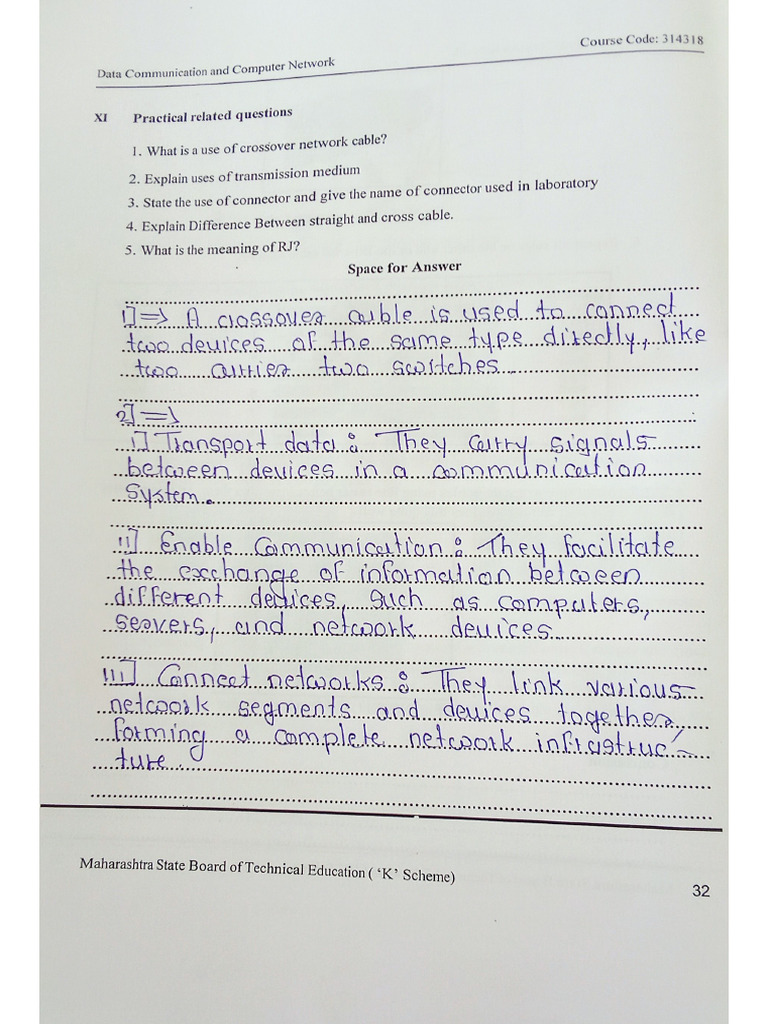 Course Code: 314318
Data Communication and Computer Network
XI Practical related questions
1. What is a use of crossover network cable?
2. Explain uses of transmission medium
3. State the use of connector and give the name of connector used in laboratory
4. Explain Difference Between straight and cross cable.
5. What is the meaning of RJ?
Space for Answer
1] ⇒ A crossover cable is used to connect
two devices of the same type directly, like
two two switches.
2] ⇒
i] Transport data : They carry signals
between devices in a communication
system.
ii] Enable Communication : They facilitate
the exchange of information between
different devices, such as computers,
servers, and network devices
iii] Connect networks : They link various
network segments and devices together
forming a complete network infrastruc-
ture.
Maharashtra State Board of Technical Education ( ‘K’ Scheme)
32